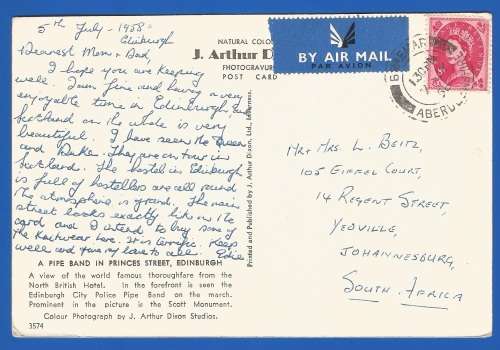 5th July - 1958
Edinburgh
Dearest Mom & Dad,
I hope you are keeping
well. I am fine and having a very
enjoyable time in Edinburgh.
Scotland on the whole is very
beautiful. I have seen the Queen
and Duke. They are on tour in
Scotland. The hostel in Edinburgh
is full of hostellers all round
the atmosphere is grand. The main
street looks exactly like in the
card and I intend to buy some of
the knitwear here. It is terrific. Keep
well and my love to all.
A PIPE BAND IN PRINCES STREET, EDINBURGH
A view of the world famous thoroughfare from the
North British Hotel. In the forefront is seen the
Edinburgh City Police Pipe Band on the march.
Prominent in the picture is the Scott Monument.
Colour Photograph by J. Arthur Dixon Studios.
3574
NATURAL COLO
J. Arthur D
PHOTOGRAVUR
POST CARD
Printed and Published by J. Arthur Dixon, Ltd.
BY AIR MAIL
PAR AVION
ABERD
Mr & Mrs L. Beitz,
105 Eiffel Court,
14 Regent Street,
Yeoville,
Johannesburg,
South Africa